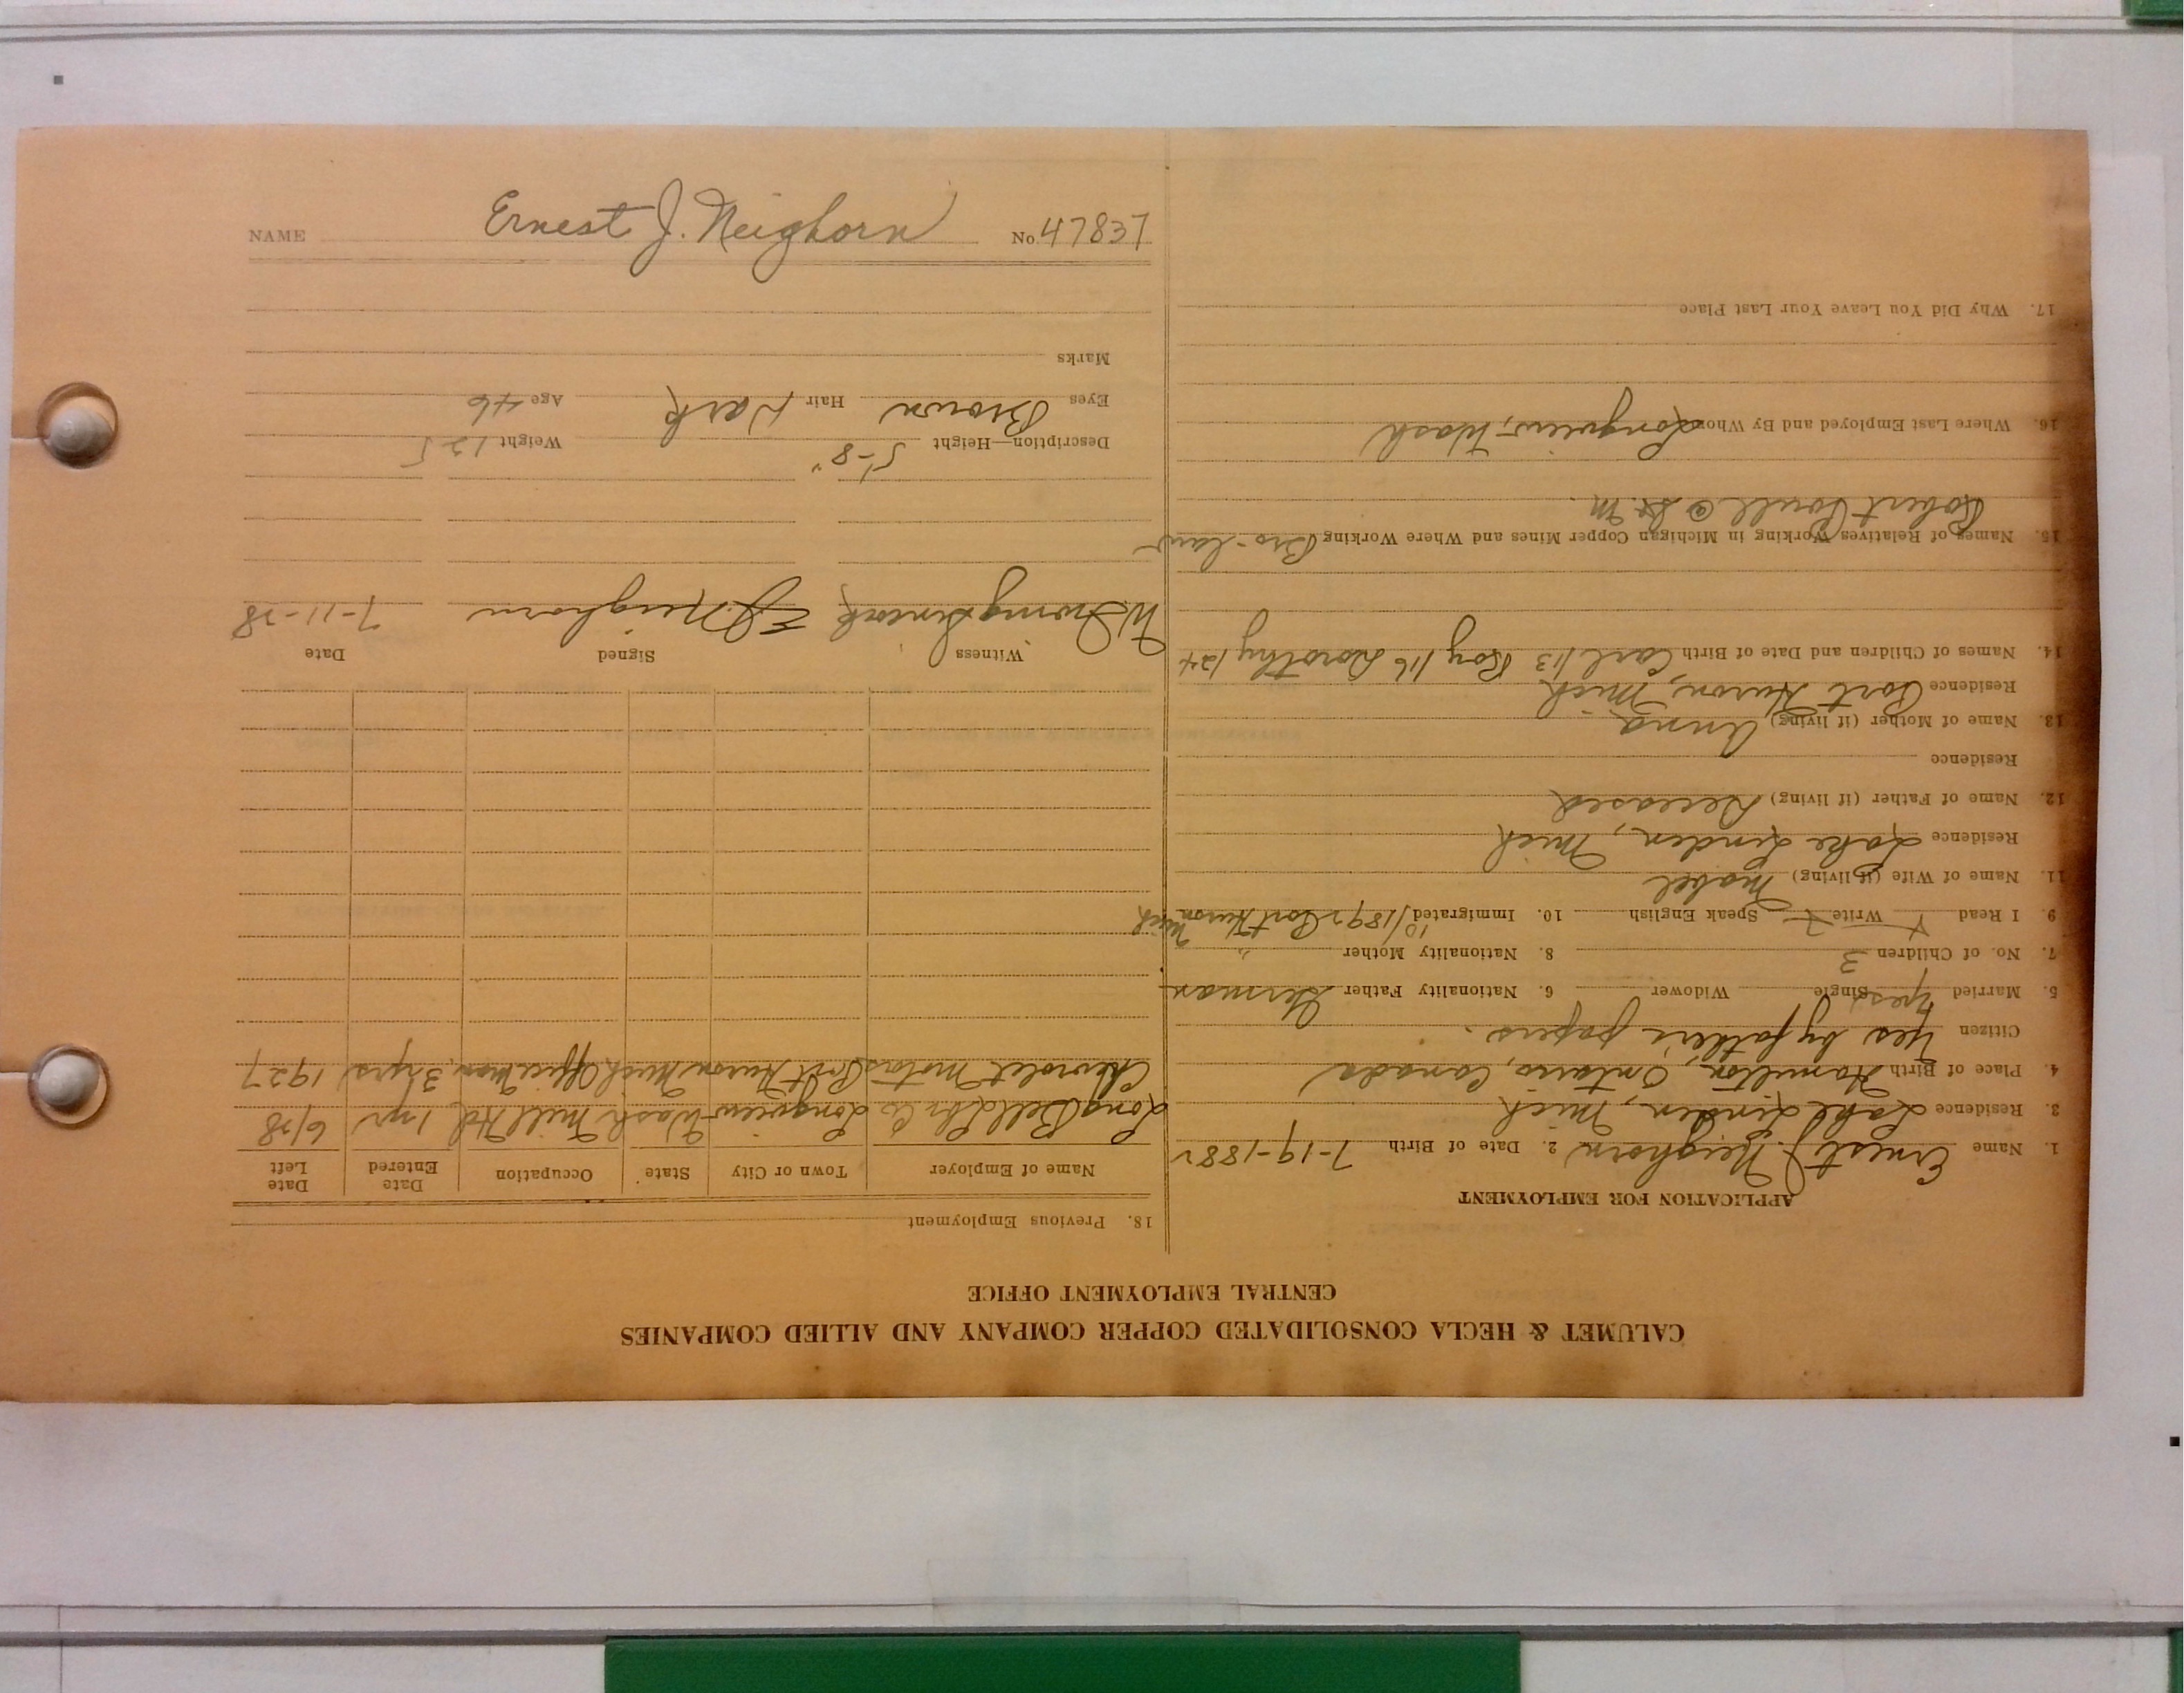 NAME Ernest J. Neighorn No. 47837
CALUMET & HECLA CONSOLIDATED COPPER COMPANY AND ALLIED COMPANIES
CENTRAL EMPLOYMENT OFFICE
APPLICATION FOR EMPLOYMENT
1. Name Ernest J. Neighorn 2. Date of Birth 7-19-1882
3. Residence Lake Linden, Mich
4. Place of Birth Hamilton, Ontario, Canada
Citizen Yes by father's papers.
5. Married Yes Single Widower 6. Nationality Father German
7. No. of Children 3 8. Nationality Mother "
9. I Read Y Write Y Speak English 10. Immigrated 10/1892 Port Huron Mich
11. Name of Wife (if living) Mabel
Residence Lake Linden, Mich
12. Name of Father (if living) Deceased
Residence
13. Name of Mother (if living) Anna
Residence Port Huron, Mich
14. Names of Children and Date of Birth Carl 1/13 Roy 1/16 Dorothy 1/24
15. Names of Relatives Working in Michigan Copper Mines and Where Working Bro-law
Robert @ St. M.
16. Where Last Employed and By Whom Longview, Wash
17. Why Did You Leave Your Last Place
18. Previous Employment
Name of Employer Town or City State Occupation Date Entered Date Left
Long Bell Lbr Co Longview Wash Mill Hd 1 yr 6/28
Chevrolet Motors Port Huron Mich Office Man 3 yrs 1927
Witness Signed Date
W. Irving EJ Neighorn 7-11-28
Description—Height 5'-8" Weight 125
Eyes Brown Hair Dark Age 46
Marks